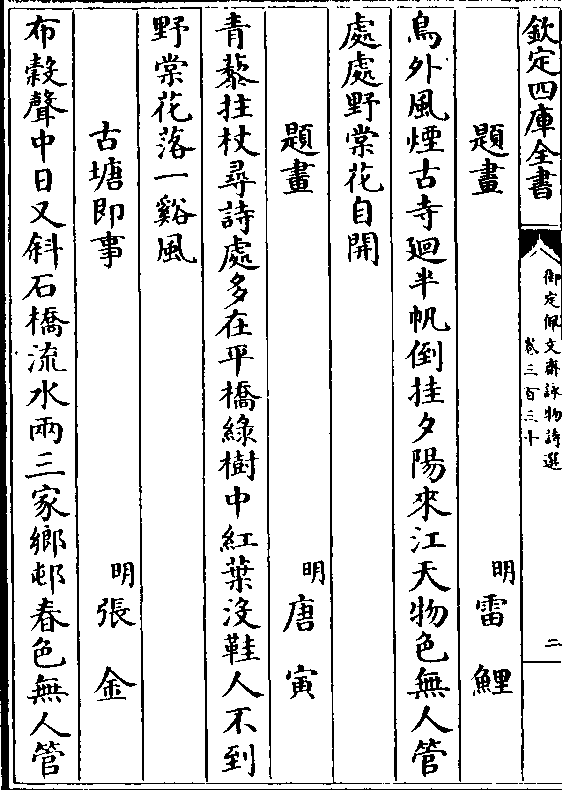 欽定四庫全書
御定佩文齋詠物詩選
卷三百三十
二
題畫
明雷鯉
鳥外風煙古寺廻半帆倒挂夕陽來江天物色無人管
處處野棠花自開
題畫
明唐寅
青藜拄杖尋詩處多在平橋綠樹中紅葉沒鞋人不到
野棠花落一谿風
古塘即事
明張金
布穀聲中日又斜石橋流水兩三家鄉邨春色無人管